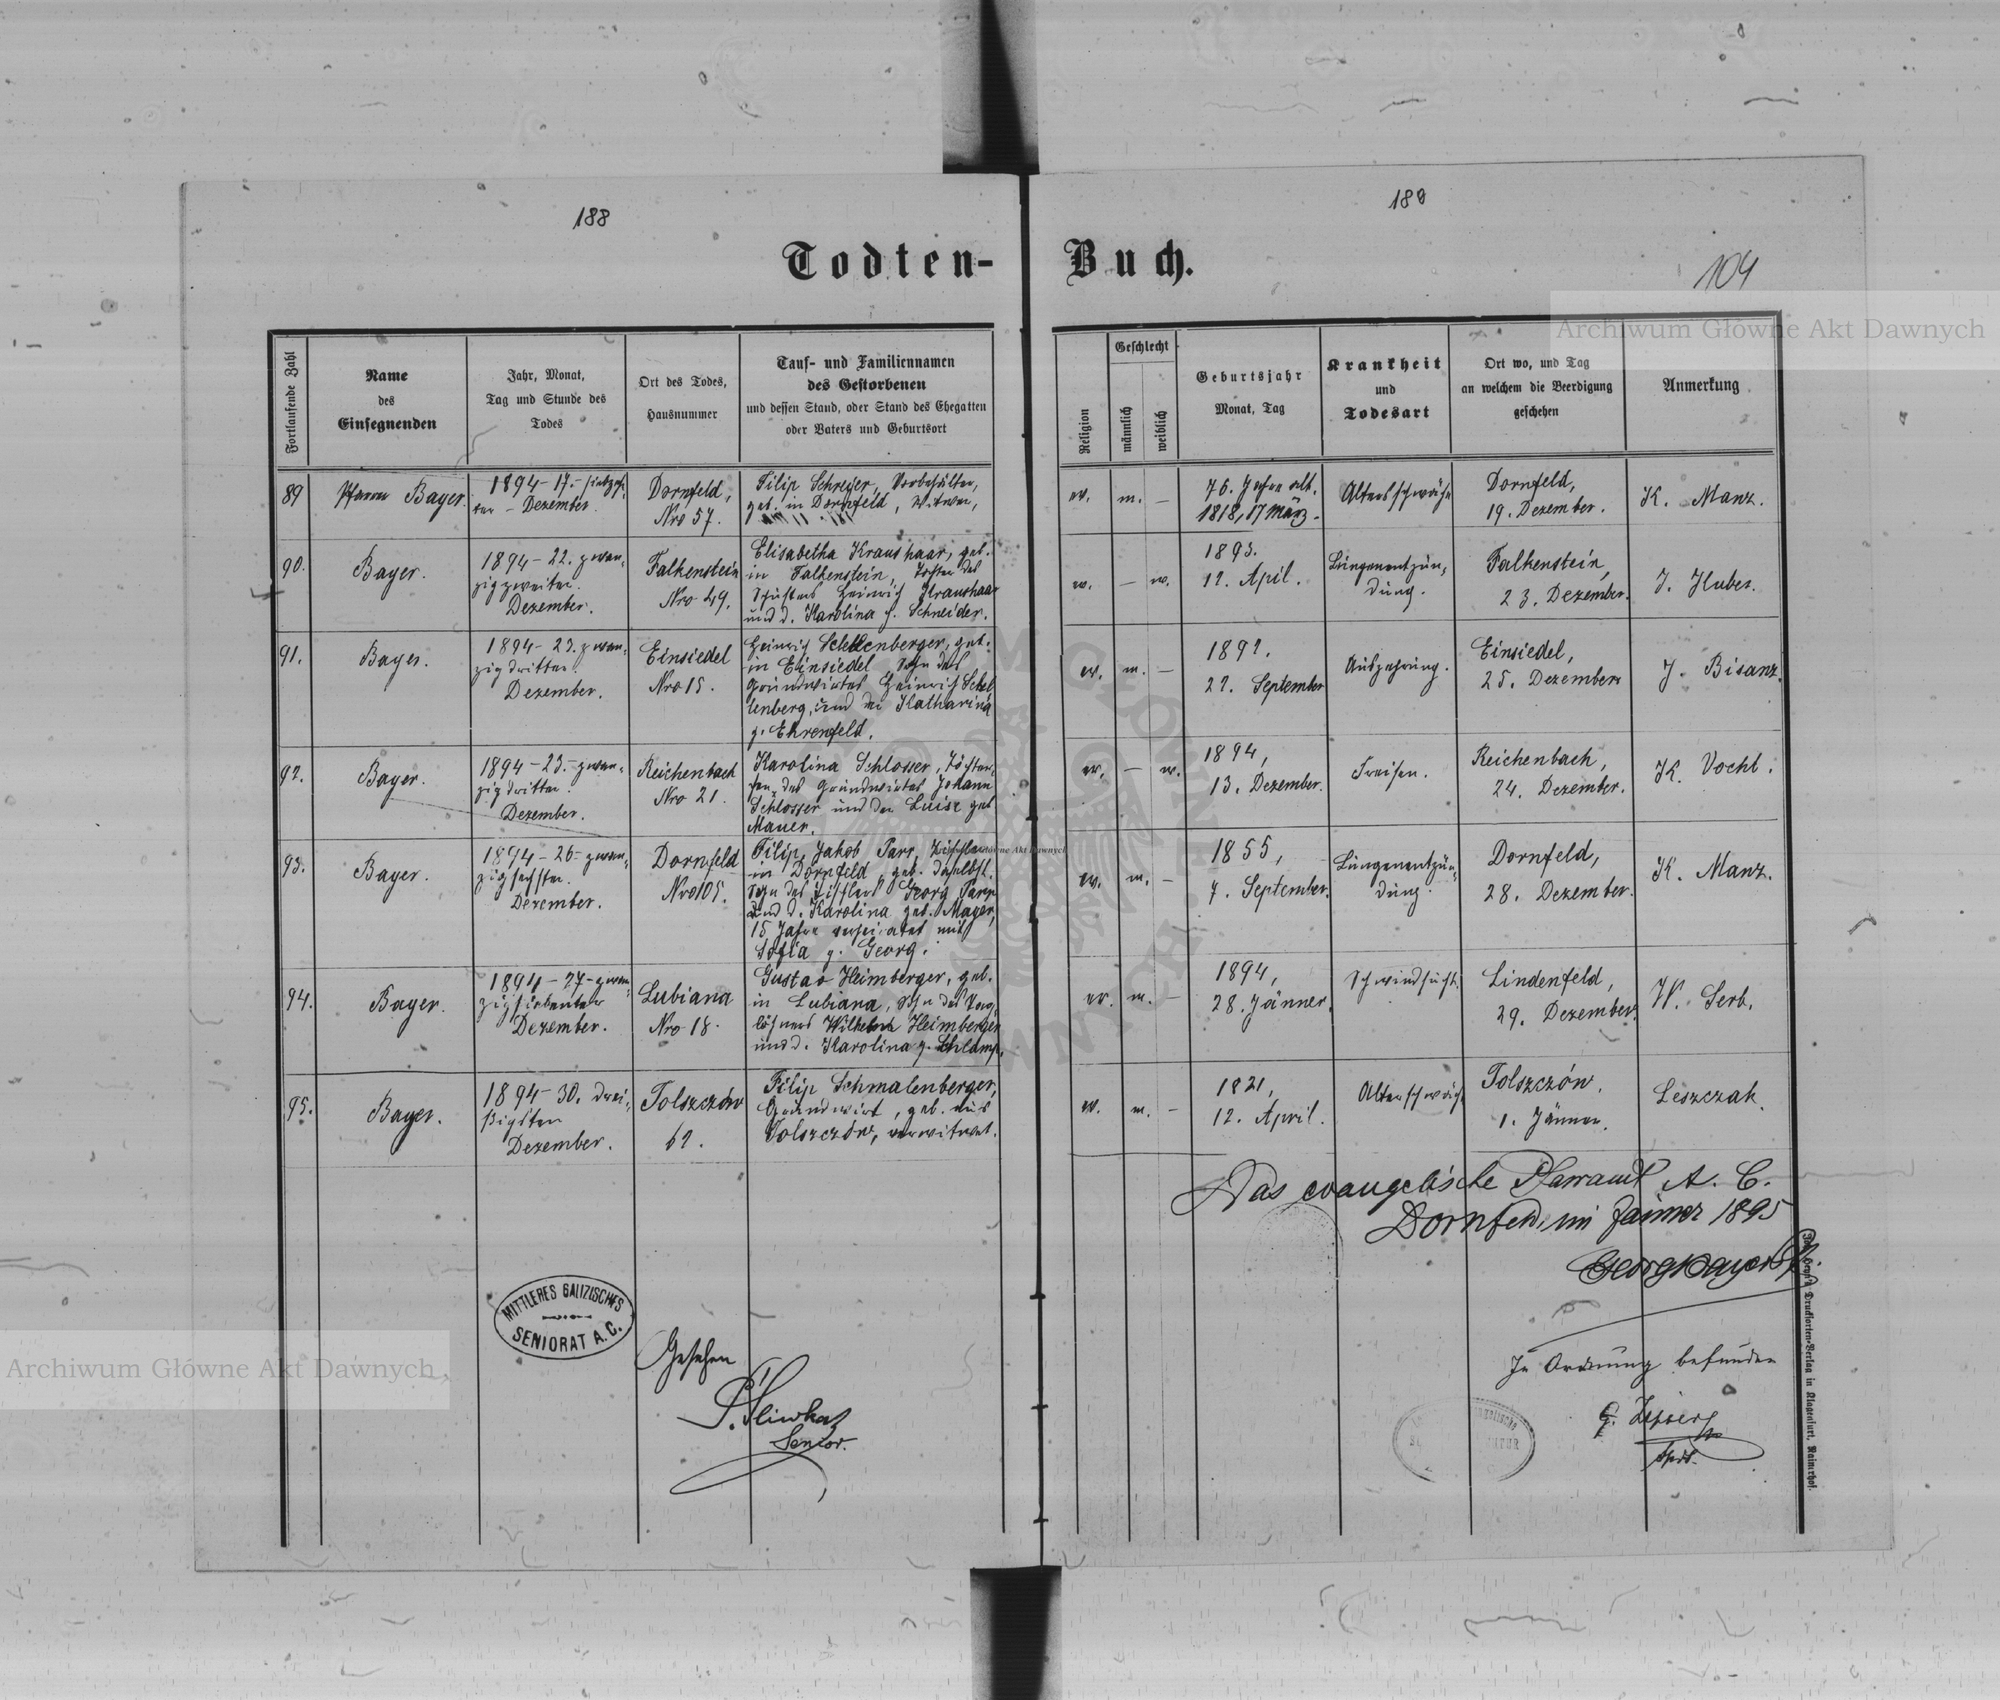 188
189
Todten-Buch.
104
Archiwum Główne Akt Dawnych
Fortlaufende Zahl
Name
des
Einsegnenden
Jahr, Monat,
Tag und Stunde des
Todes
Ort des Todes,
Hausnummer
Tauf- und Familiennamen
des Gestorbenen
und dessen Stand, oder Stand des Ehegatten
oder Vaters und Geburtsort
Religion
Geschlecht
männlich
weiblich
Geburtsjahr
Monat, Tag
Krankheit
und
Todesart
Ort wo, und Tag
an welchem die Beerdigung
geschehen
Anmerkung
89
Pfarrer Bayer.
1894 - 17. - siebzehn-
ter - Dezember.
Dornfeld,
Nro 57.
Filip Schreyer, Vorbehälter,
geb. in Dornfeld, Witwer,
ev.
m.
—
76. Jahre alt.
1818, 17 März.
Altersschwäche
Dornfeld,
19. Dezember.
K. Manz.
90.
Bayer.
1894 - 22. zwan-
zigzweiter.
Dezember.
Falkenstein
Nro 49.
Elisabetha Kraushaar, geb.
in Falkenstein, Tochter des
Schusters Heinrich Kraushaar
und d. Karolina g. Schneider.
ev.
—
w.
1893.
12. April.
Lungenentzün-
dung.
Falkenstein,
23. Dezember.
J. Huber.
91.
Bayer.
1894 - 23. zwan-
zigdritter
Dezember.
Einsiedel
Nro 15.
Heinrich Schellenberger, geb.
in Einsiedel, Sohn des
Grundwirtes Heinrich Schel
lenberg, und der Katharina
g. Ehrenfeld.
ev.
m.
—
1892.
27. September
Auszehrung.
Einsiedel,
25. Dezember
J. Bisanz.
92.
Bayer.
1894 - 23. - zwan-
zigdritter.
Dezember.
Reichenbach
Nro 21.
Karolina Schlosser, Töchter-
chen des Grundwirtes Johann
Schlosser und der Luise geb
Mauer.
ev.
—
w.
1894,
13. Dezember.
Freisen.
Reichenbach,
24. Dezember.
K. Vocht.
93.
Bayer.
1894 - 26 - zwan-
zigsechster.
Dezember.
Dornfeld
Nro 105.
Filip Jakob Parr, Tischler
in Dornfeld, geb. daselbst.
Sohn des Tischlers Georg Parr
und d. Karolina geb. Mayer,
15 Jahre verheiratet mit
Sofia g. Georg.
ev.
m.
—
1855,
7. September.
Lungenentzün-
dung.
Dornfeld,
28. Dezember.
K. Manz.
94.
Bayer.
1894 - 27 - zwan-
zigsiebenter
Dezember.
Lubiana
Nro 18.
Gustav Heimberger, geb.
in Lubiana, Sohn des Tag-
löhners Wilhelm Heimberger
und d. Karolina g. Schlamp.
ev.
m.
—
1894,
28. Jänner.
Schwindsucht.
Lindenfeld,
29. Dezember.
W. Serb.
95.
Bayer.
1894 - 30. drei-
ßigsten
Dezember.
Tolszczów
62.
Filip Schmalenberger,
Grundwirt, geb. aus
Tolszczów, verwitwet.
ev.
m.
—
1821,
12. April.
Altersschwäche
Tolszczów.
1. Jänner.
Leszczak.
Das evangelische Pfarramt A. C.
Dornfeld, im Jänner 1895
Georg Bayer
MITTLERES GALIZISCHES
SENIORAT A. C.
Gesehen
Senior.
In Ordnung befunden
Archiwum Główne Akt Dawnych